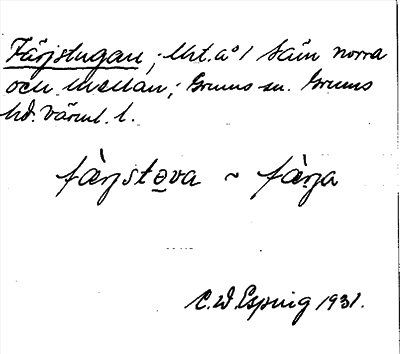 Färjstugan; lht. a° 1 Säm norra
och mellan; Grums sn. Grums
hd. Värml. l.
fàrjstova ~ fàrja
C. W Espwig 1931.